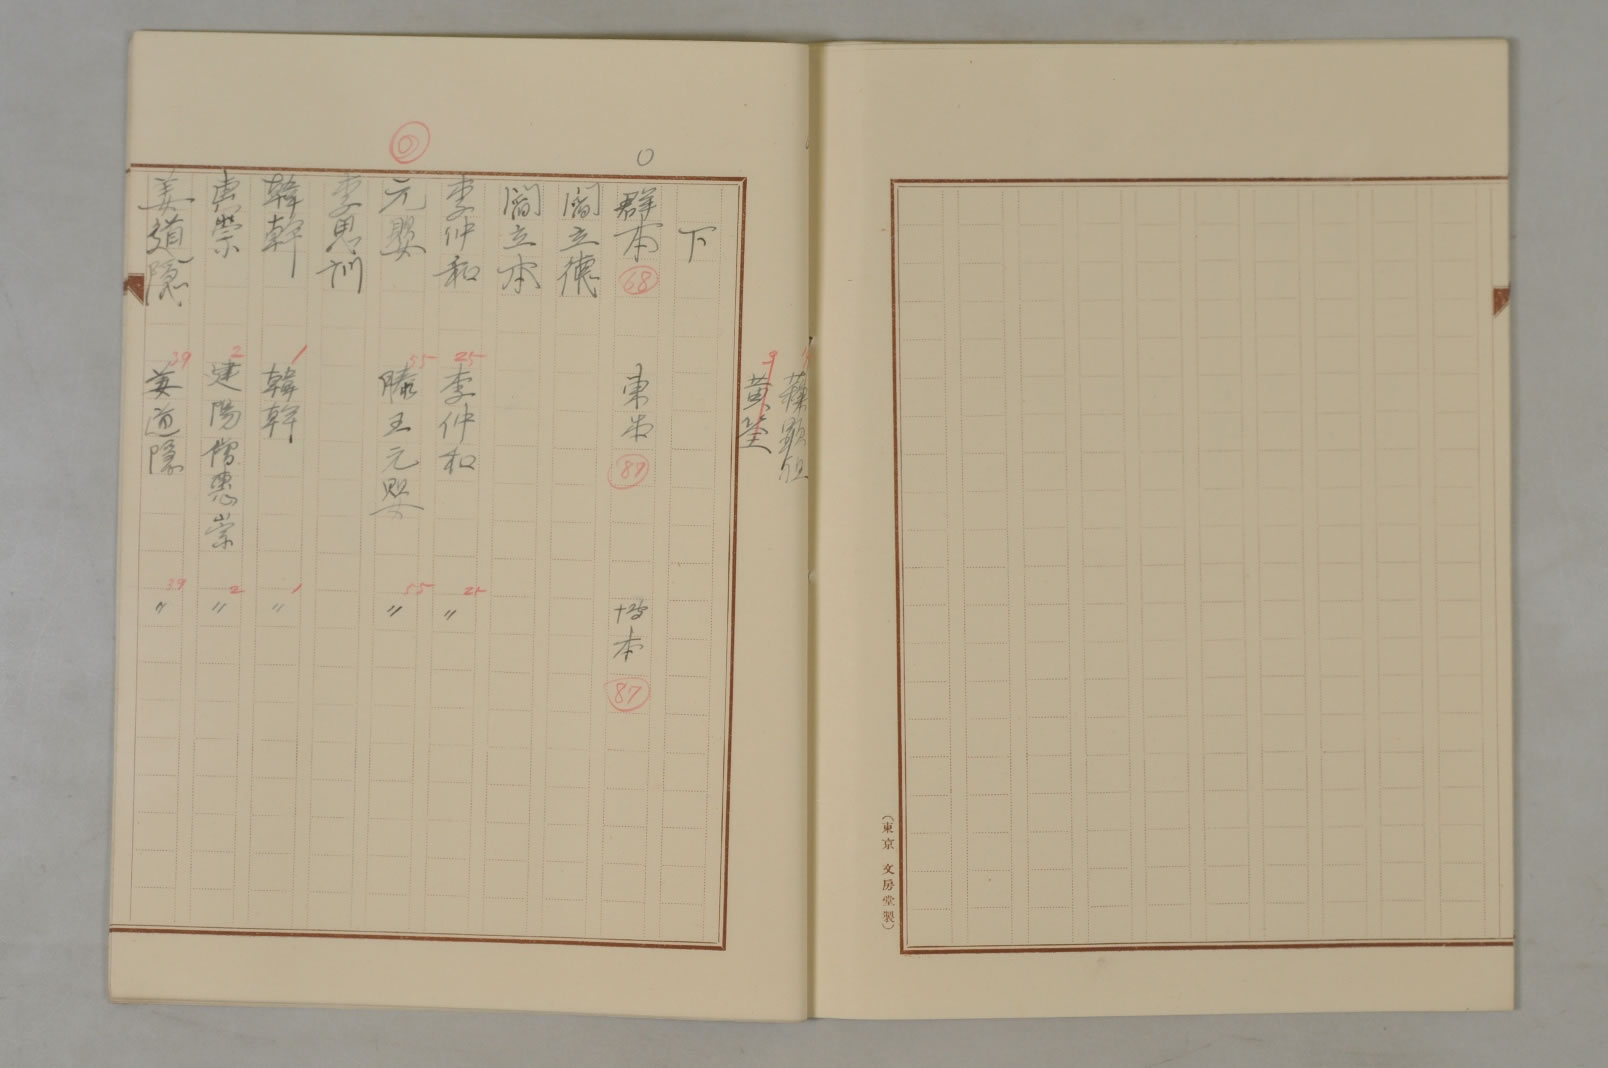 (東京 文房堂製)
黄筌 3
下
○ 群本 68 東本 87 本 87
閻立德
閻立本
李仲和 25 李仲和 25 〃
元嬰 55 滕王元嬰 55 〃
李思訓
韓幹 1 韓幹 1 〃
惠崇 2 建陽僧惠崇 2 〃
姜道隱 39 姜道隱 39 〃